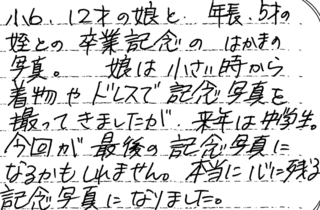 小6、12才の娘と 年長、5才の
姪との 卒業記念の はかまの
写真。 娘は 小さい時から
着物や ドレスで 記念写真を
撮ってきましたが 来年は中学生。
今回が 最後の 記念写真に
なるかもしれません。本当に心に残る
記念写真に なりました。